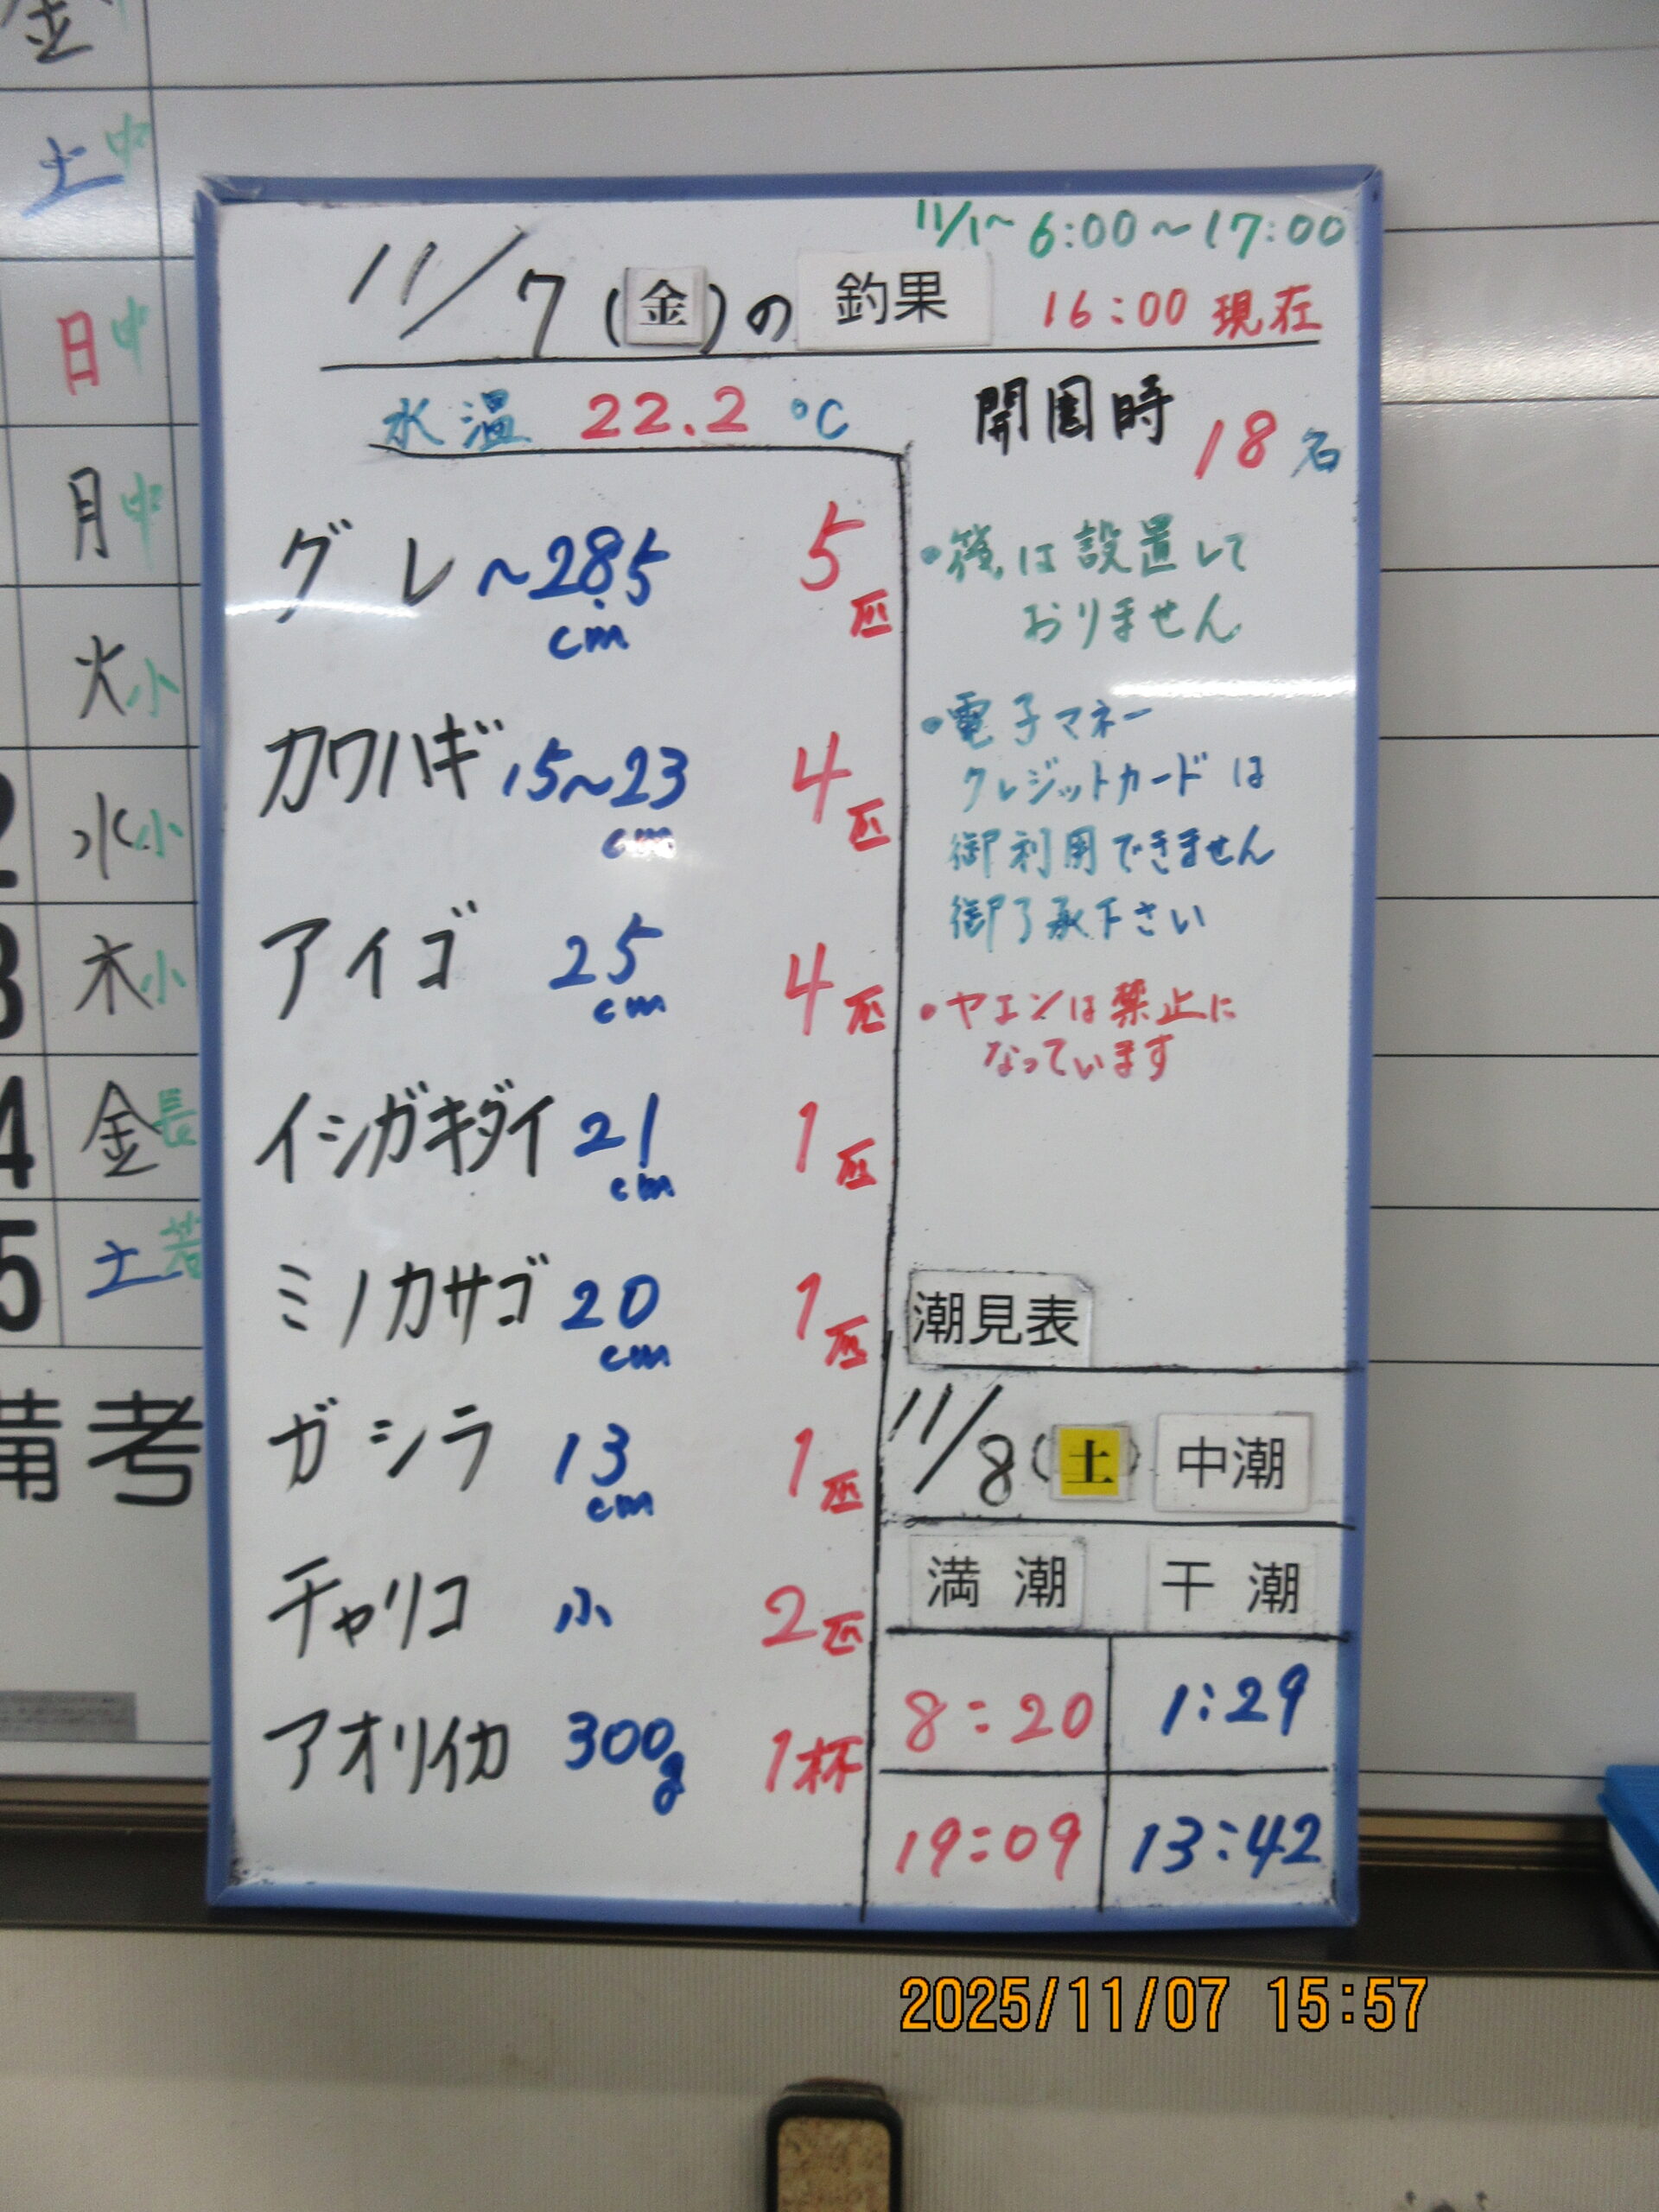 11/1～ 6:00～17:00
11/7(金)の釣果 16:00 現在
水温 22.2 ℃
開園時 18名
グレ ～28.5cm 5匹
カワハギ 15～23cm 4匹
アイゴ 25cm 4匹
イシガキダイ 21cm 1匹
ミノカサゴ 20cm 1匹
ガシラ 13cm 1匹
チャリコ 小 2匹
アオリイカ 300g 1杯
・筏は設置して
おりません
・電子マネー
クレジットカードは
御利用できません
御了承下さい
・ヤエンは禁止に
なっています
潮見表
11/8(土) 中潮
満潮 干潮
8:20 1:29
19:09 13:42
金
土 中
日 中
月 中
火 小
水 小
木 小
4 金 長
5 土 若
備考
2025/11/07 15:57